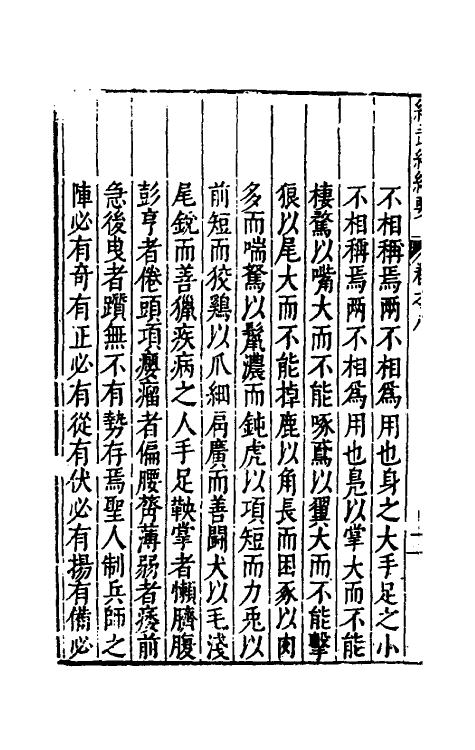 武經總要 卷之八
不相稱焉兩不相爲用也身之大手足之小
不相稱焉兩不相爲用也鳧以掌大而不能
棲鶩以嘴大而不能啄鳶以翼大而不能擊
狼以尾大而不能掉鹿以角長而困豕以肉
多而喘駑以鬣濃而鈍虎以項短而力兎以
前短而狡鷄以爪細肩廣而善鬭犬以毛淺
尾銳而善獵疾病之人手足鞅掌者懶臍腹
彭亨者倦頭項癭瘤者偏腰膂薄弱者痿前
急後曳者躓無不有勢存焉聖人制兵師之
陣必有奇有正必有從有伏必有揚有備必